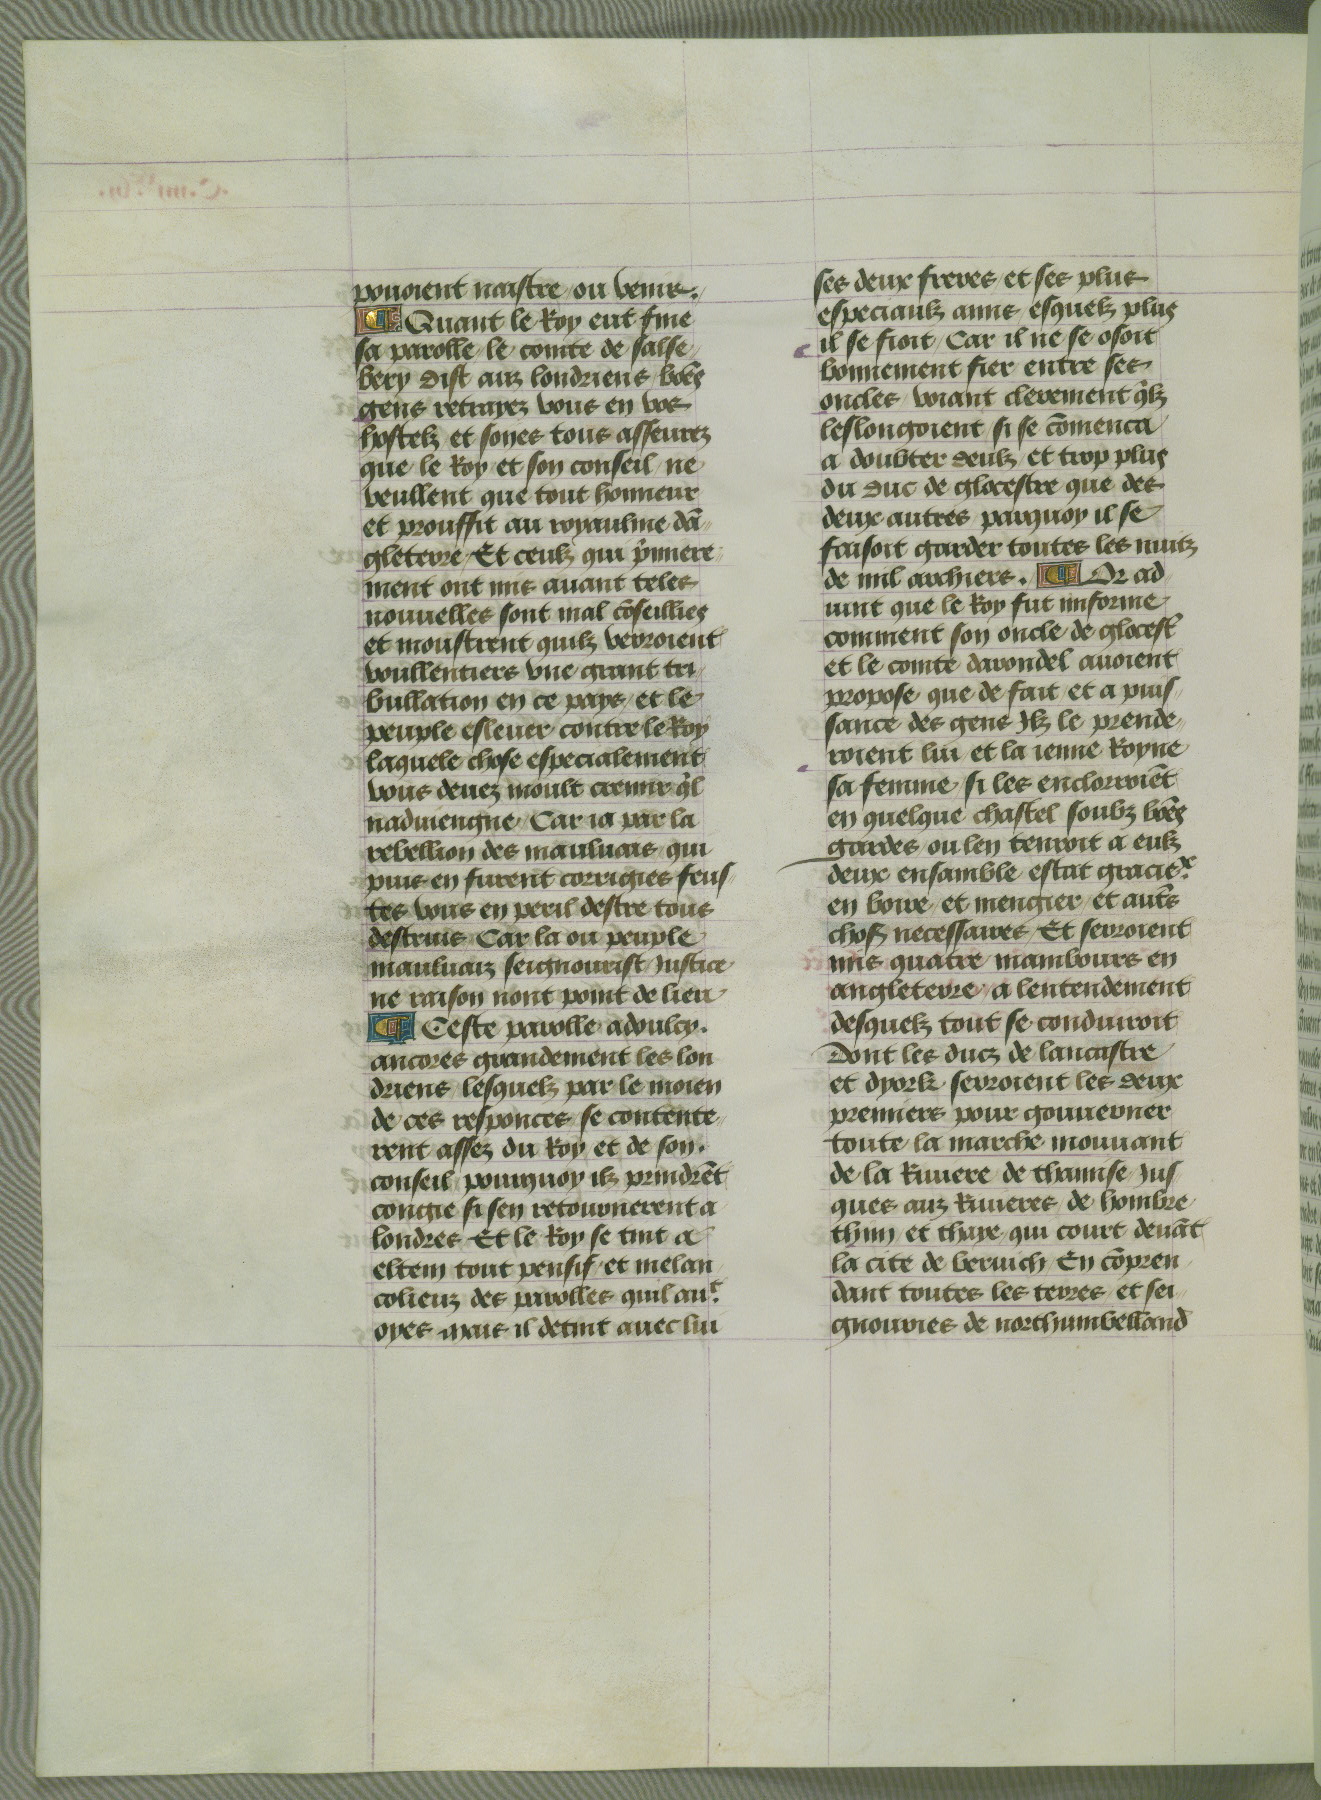 pouoient naistre ou venir.
Quant le Roy eut fine
sa parolle le comte de salse
bery dist aux londriens bōēs
gens retrayez vous en vos
hostelz et soyes tous asseurez
que le Roy et son conseil ne
veullent que tout honneur
et prouffit au royaulme dā
gleterre Et ceulz qui p̄miere
ment ont mis auant teles
nouuelles sont mal cōseillies
et moustrent quilz verroient
voullentiers vne grant tri
bullation en ce pays et le
peuple esleuer contre le Roy
laquele chose especialement
vous deuez moult cremir q̄l
nadviengne Car ia par la
rebellion des mauluais qui
puis en furent corrigies feus
tes vous en peril destre tous
destruis Car la ou peuple
mauluaiz seignourist Justice
ne raison nont point de lieu
Ceste parolle adoulcy
ancores grandement les lon
driens lesquelz par le moien
de ces responces se contente
rent assez du Roy et de son
conseil pourquoy ilz prindrēt
congie si sen retournerent a
londres Et le Roy se tint a
eltem tout pensif et melan
colieux des parolles quil auᵗ
oyes mais il detint auec lui
ses deux freres et ses plus
especiaulz amis esquelz plus
il se fioit Car il ne se osoit
bonnement fier entre ses
oncles voiant clerement q̄lz
leslongoient si se cōmenca
a doubter deulz et trop plus
du duc de glocestre que des
deux autres parquoy il se
faisoit garder toutes les nuitz
de mil archiers. Or ad
uint que le Roy fut imforme
comment son oncle de glocest̄
et le comte darondel auoient
propose que de fait et a puis
sance des gens Jlz le prende
roient lui et la ienne Royne
sa femme si les enclorroiēt
en quelque chastel soubz bōēs
gardes ou len tenroit a eulz
deux ensamble estat gracieˣ
en boire et mengier et aut̄s
choss necessaires Et serroient
mis quatre mambours en
angleterre a lentendement
desquelz tout se conduiroit
Dont les ducz de lancastre
et dyork serroient les deux
premiers pour gouuerner
toute la marche mouuant
de la Riuiere de thamise Jus
ques aux Riuieres de hombre
thin et thaye qui court deuāt
la cite de beruich En cōpren
dant toutes les terres et sei
gnouries de northumbelland